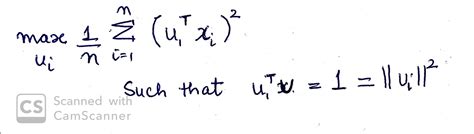 max 1/n Σ_{i=1}^{n} (u₁ᵀ xᵢ)²
uᵢ
Such that u₁ᵀu = 1 = ||uᵢ||²
CS Scanned with
CamScanner